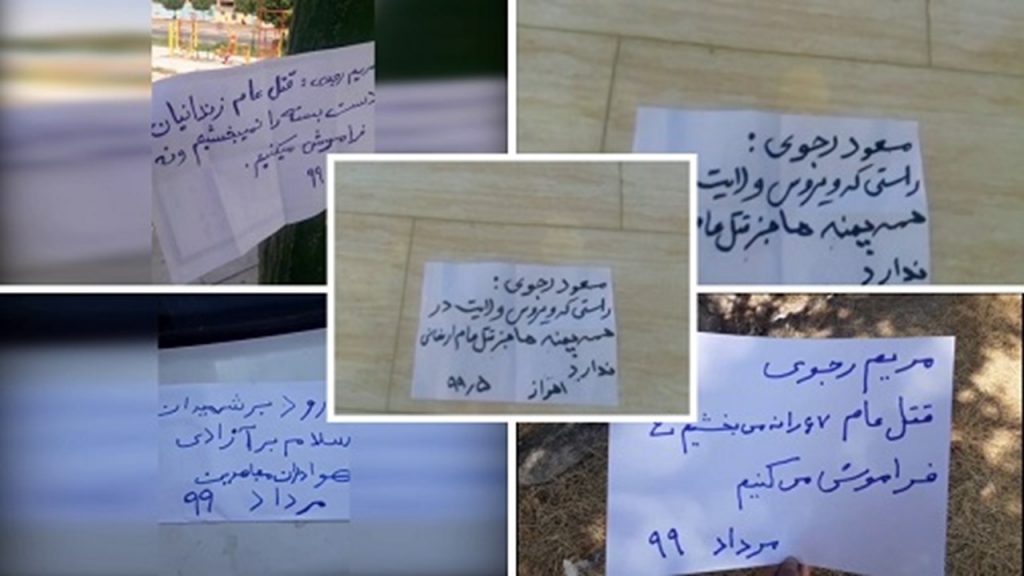 مریم رجوی: قتل عام زندانیان
دست بسته را نمیبخشیم ونه
فراموش میکنیم.
۹۹
مسعود رجوی:
راستی که ویروس ولایت
همه پهنه ها جز قتل عام
ندارد
مسعود رجوی:
راستی که ویروس ولایت در
همه پهنه ها جز قتل عام ارمغانی
ندارد
اهواز ۹۹٫۵
رود بر شهیدان
سلام بر آزادی
هواداران مجاهدین
مرداد ۹۹
مریم رجوی
قتل عام ۶۷ را نه می بخشیم نه
فراموش می کنیم
مرداد ۹۹